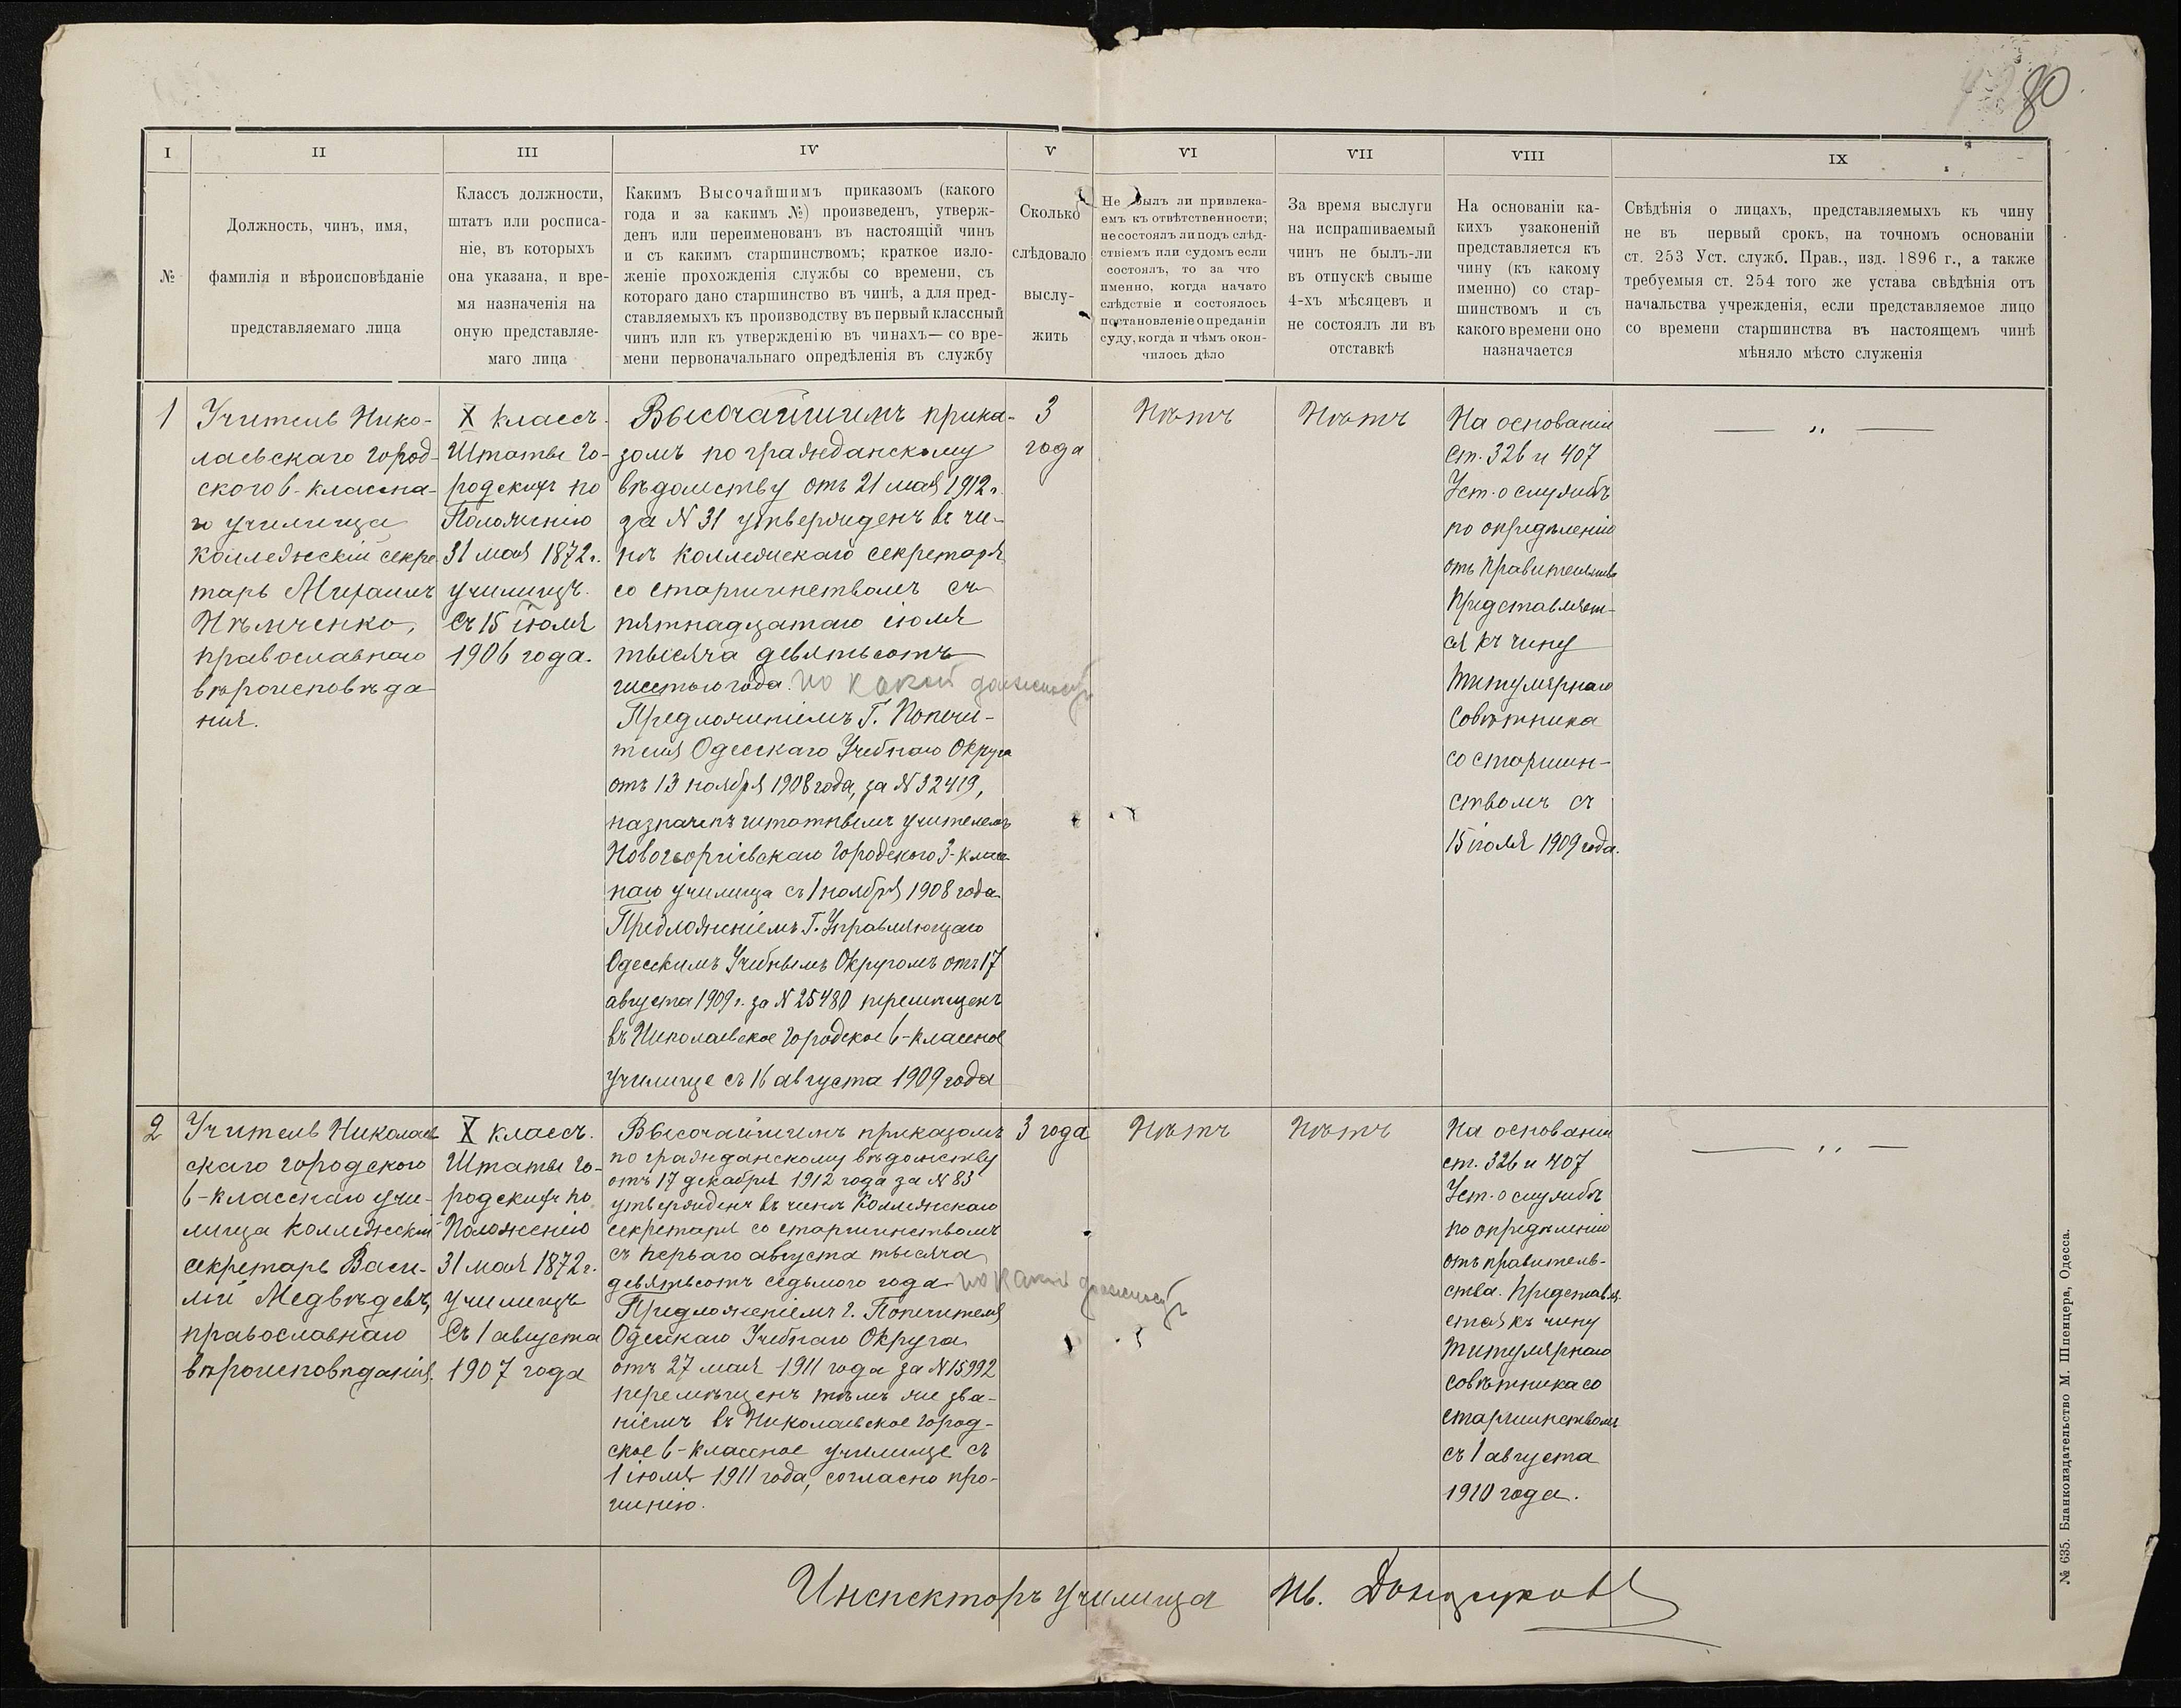 80
I
II
III
IV
V
VI
VII
VIII
IX
№
Должность, чинъ, имя,
фамилія и вѣроисповѣданіе
представляемаго лица
Классъ должности,
штатъ или росписа-
ніе, въ которыхъ
она указана, и вре-
мя назначенія на
оную представляе-
маго лица
Какимъ Высочайшимъ приказомъ (какого
года и за какимъ №) произведенъ, утверж-
денъ или переименованъ въ настоящій чинъ
и съ какимъ старшинствомъ; краткое изло-
женіе прохожденія службы со времени, съ
котораго дано старшинство въ чинѣ, а для пред-
ставляемыхъ къ производству въ первый классный
чинъ или къ утвержденію въ чинахъ—со вре-
мени первоначальнаго опредѣленія въ службу
Сколько
слѣдовало
выслу-
жить
Не былъ ли привлека-
емъ къ отвѣтственности;
не состоялъ ли подъ слѣд-
ствіемъ или судомъ если
состоялъ, то за что
именно, когда начато
слѣдствіе и состоялось
постановленіе о преданіи
суду, когда и чѣмъ окон-
чилось дѣло
За время выслуги
на испрашиваемый
чинъ не былъ-ли
въ отпускѣ свыше
4-хъ мѣсяцевъ и
не состоялъ ли въ
отставкѣ
На основаніи ка-
кихъ узаконеній
представляется къ
чину (къ какому
именно) со стар-
шинствомъ и съ
какого времени оно
назначается
Свѣдѣнія о лицахъ, представляемыхъ къ чину
не въ первый срокъ, на точномъ основаніи
ст. 253 Уст. служб. Прав., изд. 1896 г., а также
требуемыя ст. 254 того же устава свѣдѣнія отъ
начальства учрежденія, если представляемое лицо
со времени старшинства въ настоящемъ чинѣ
мѣняло мѣсто служенія
1
Учитель Нико-
лаевскаго город-
ского 6-классна-
го училища
коллежскій секре-
тарь Михаилъ
Нѣмченко,
православнаго
вѣроисповѣда
нія.
X классъ.
Штаты го-
родскихъ по
Положенію
31 мая 1872 г.
училищъ.
Съ 15 іюля
1906 года.
Высочайшимъ прика-
зомъ по гражданскому
вѣдомству отъ 21 мая 1912 г.
за № 31 утвержденъ въ чи-
нѣ коллежскаго секретаря
со старшинствомъ съ
пятнадцатаго іюля
тысяча девятьсотъ
шестого года. по какой должности
Предложеніемъ Г. Попечи-
теля Одесскаго Учебнаго Округа
отъ 13 ноября 1908 года, за № 32419,
назначенъ штатнымъ учителемъ
Новогеоргіевскаго Городского 3-класс-
наго училища съ 1 ноября 1908 года
Предложеніемъ Г. Управляющаго
Одесскимъ Учебнымъ Округомъ отъ 17
августа 1909 г. за № 25480 перемѣщенъ
въ Николаевское Городское 6-классное
училище съ 16 августа 1909 года
3
года
Нѣтъ
Нѣтъ
На основаніи
ст. 326 и 407
Уст. о службѣ
по опредѣленію
отъ Правительства
Представляет-
ся къ чину
Титулярнаго
Совѣтника
со старшин-
ствомъ съ
15 іюля 1909 года.
— „ —
2
Учитель Николаев
скаго городского
6-класснаго учи-
лища коллежскій
секретарь Васи-
лій Медвѣдевъ,
православнаго
вѣроисповѣданія.
X классъ.
Штаты го-
родскихъ по
Положенію
31 мая 1872 г.
училищъ
Съ 1 августа
1907 года
Высочайшимъ приказомъ
по гражданскому вѣдомству
отъ 17 декабря 1912 года за № 83
утвержденъ въ чинѣ Коллежскаго
секретаря со старшинствомъ
съ перваго августа тысяча
девятьсотъ седьмого года по какой должности
Предложеніемъ г. Попечителя
Одесскаго Учебнаго Округа
отъ 27 мая 1911 года за № 15992
перемѣщенъ тѣмъ же зва-
ніемъ въ Николаевское город-
ское 6-классное училище съ
1 іюля 1911 года, согласно про-
шенію.
3 года
Нѣтъ
Нѣтъ
На основаніи
ст. 326 и 407
Уст. о службѣ
по опредѣленію
отъ правитель-
ства. Представля-
ется къ чину
Титулярнаго
совѣтника со
старшинствомъ
съ 1 августа
1910 года.
— „ —
Инспекторъ училища Ив.
№ 635. Бланкоиздательство М. Шпенцера, Одесса.